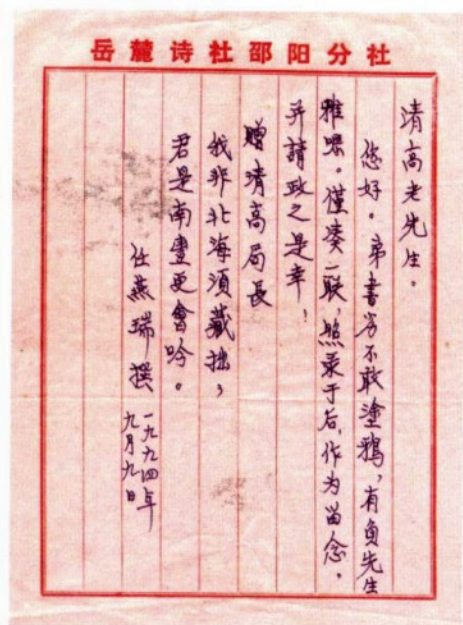 岳麓诗社邵阳分社
清高老先生。
您好。弟書劣不敢塗鴉，有負先生
雅嘱。僅凑一联，照录于后，作为留念，
并請政之是幸！
贈清高局長
我非北海須藏拙，
君是南豐更會吟。
任燕瑞撰
一九九四年
九月九日